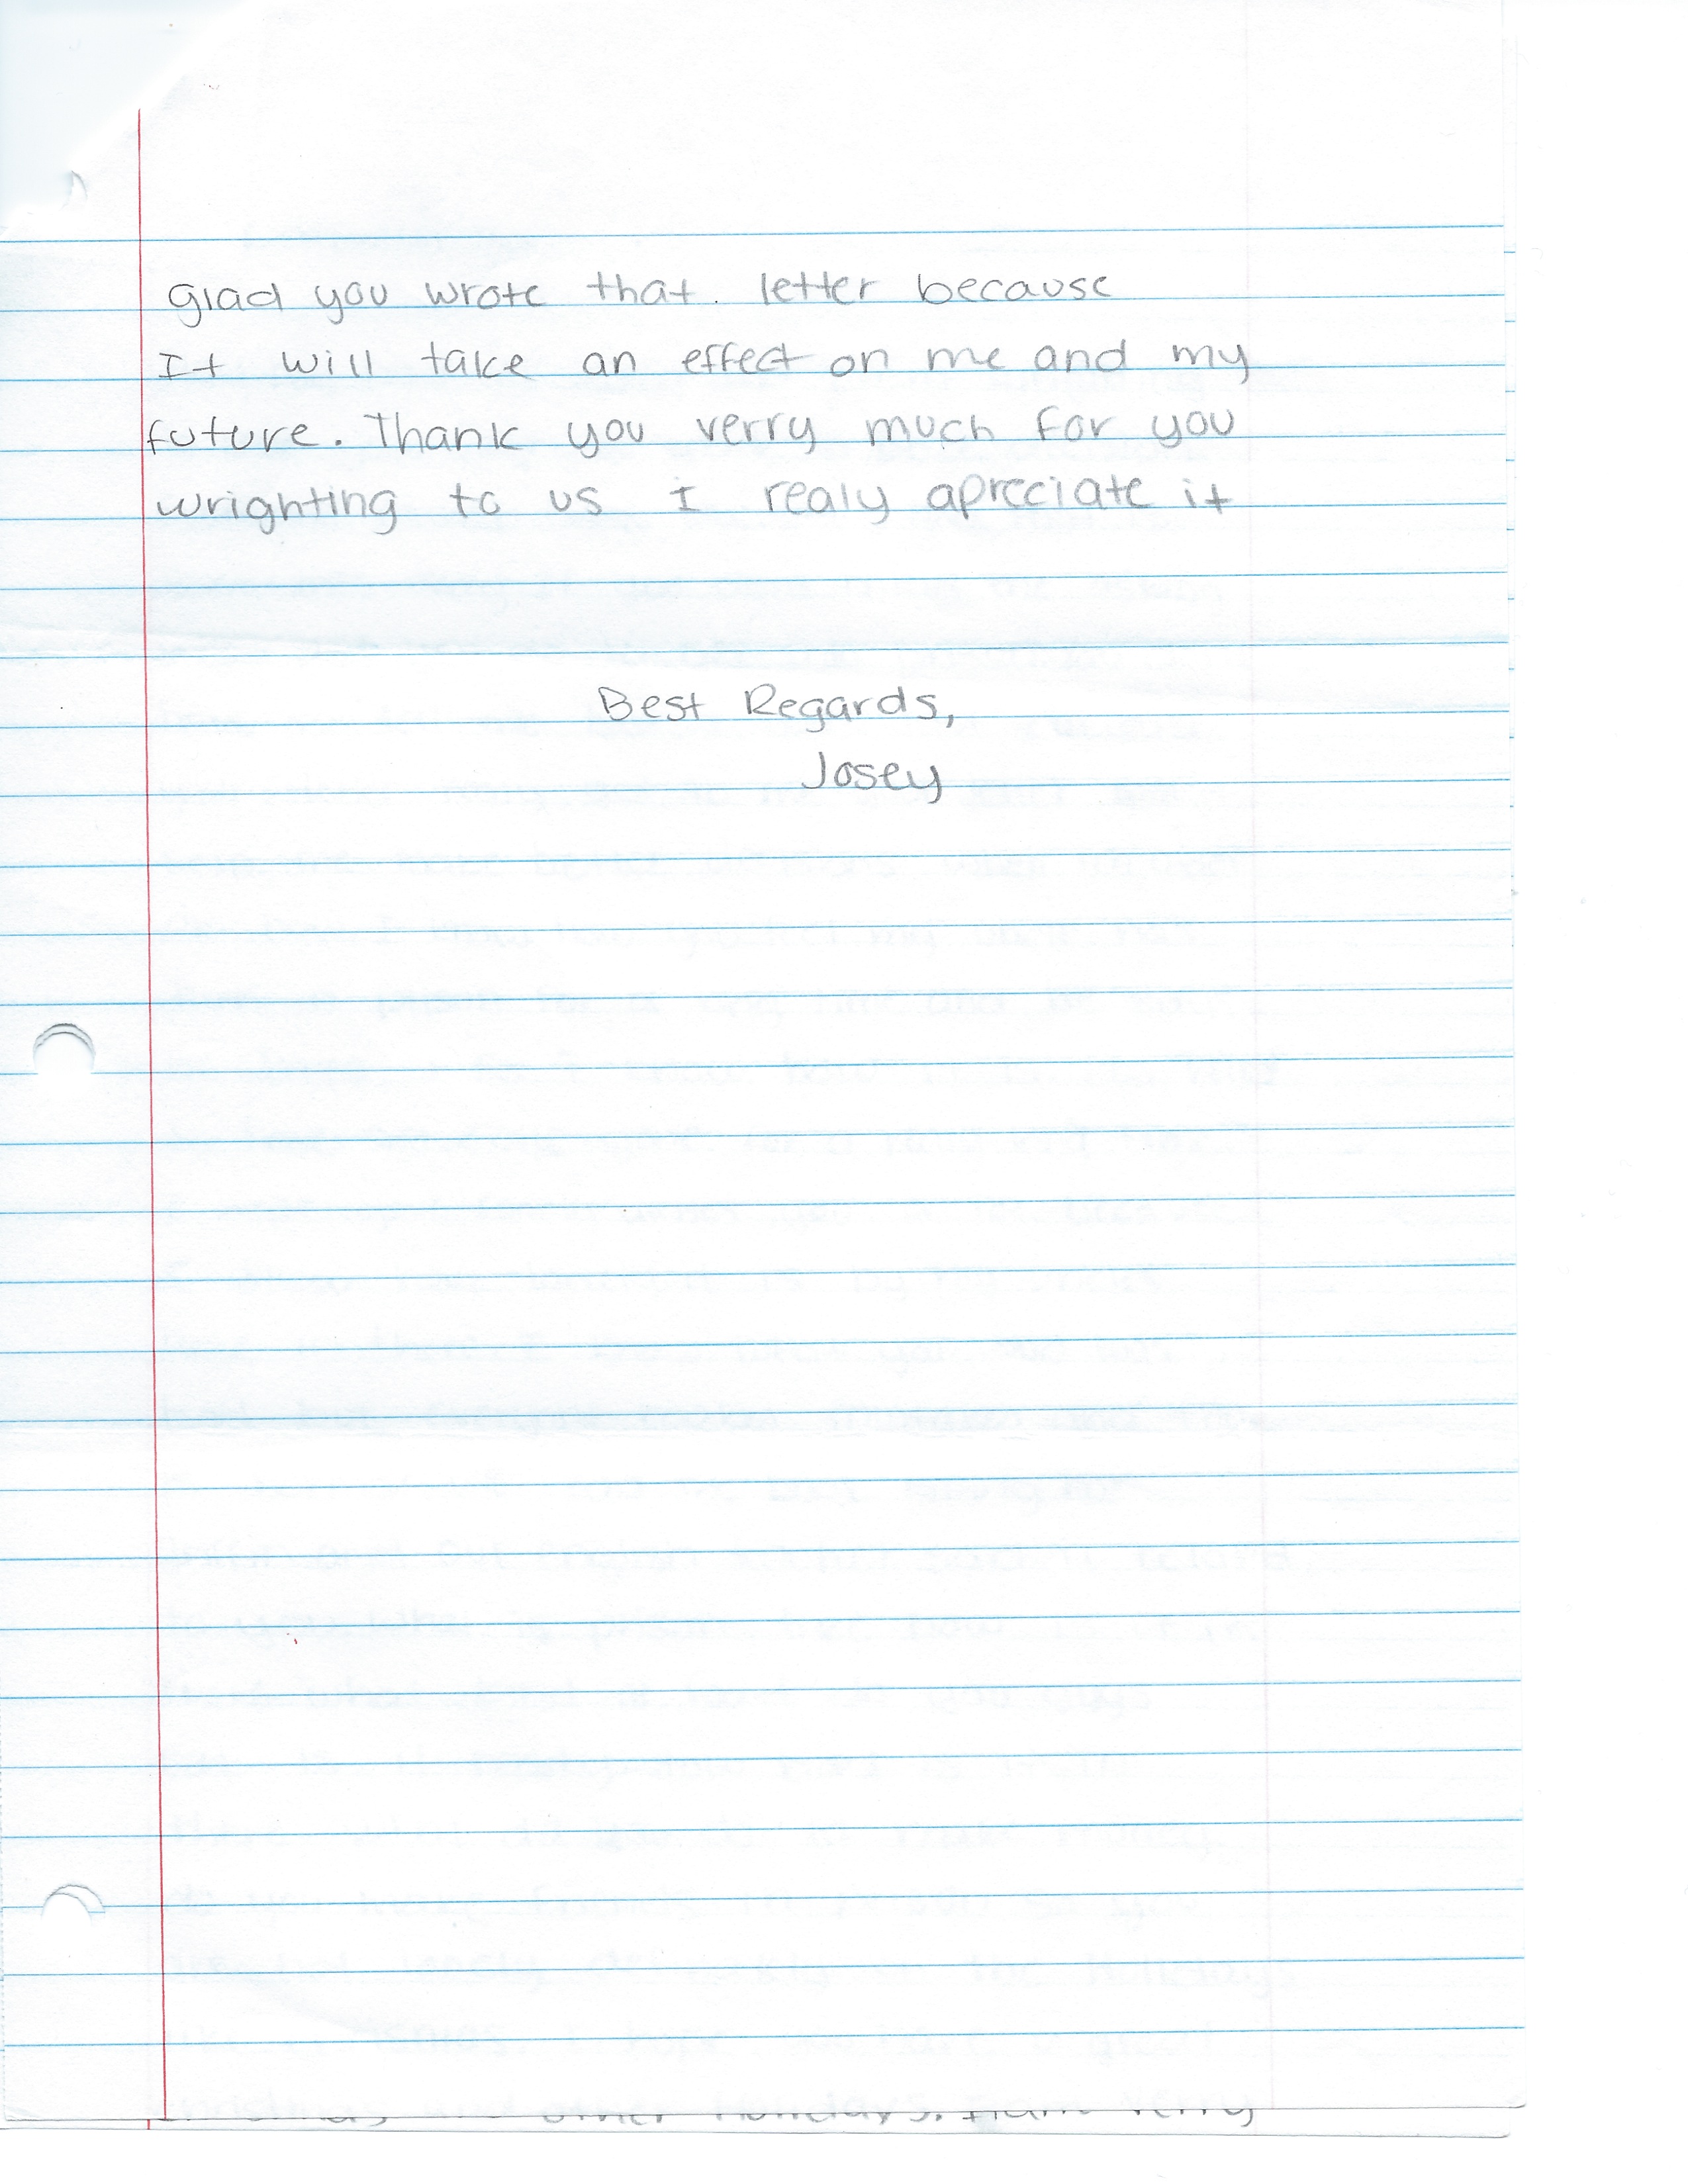 glad you wrote that. letter because
It will take an effect on me and my
future. Thank you verry much for you
wrighting to us I realy apreciate it
Best Regards,
Josey
other Holidays. I am verry